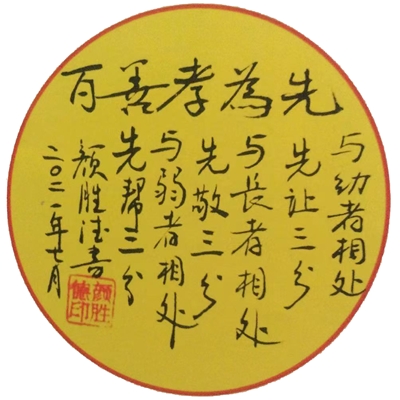 百善孝為先
与幼者相处
先让三分
与長者相处
先敬三分
与弱者相处
先帮三分
颜胜德書
二〇二一年七月
颜胜德印